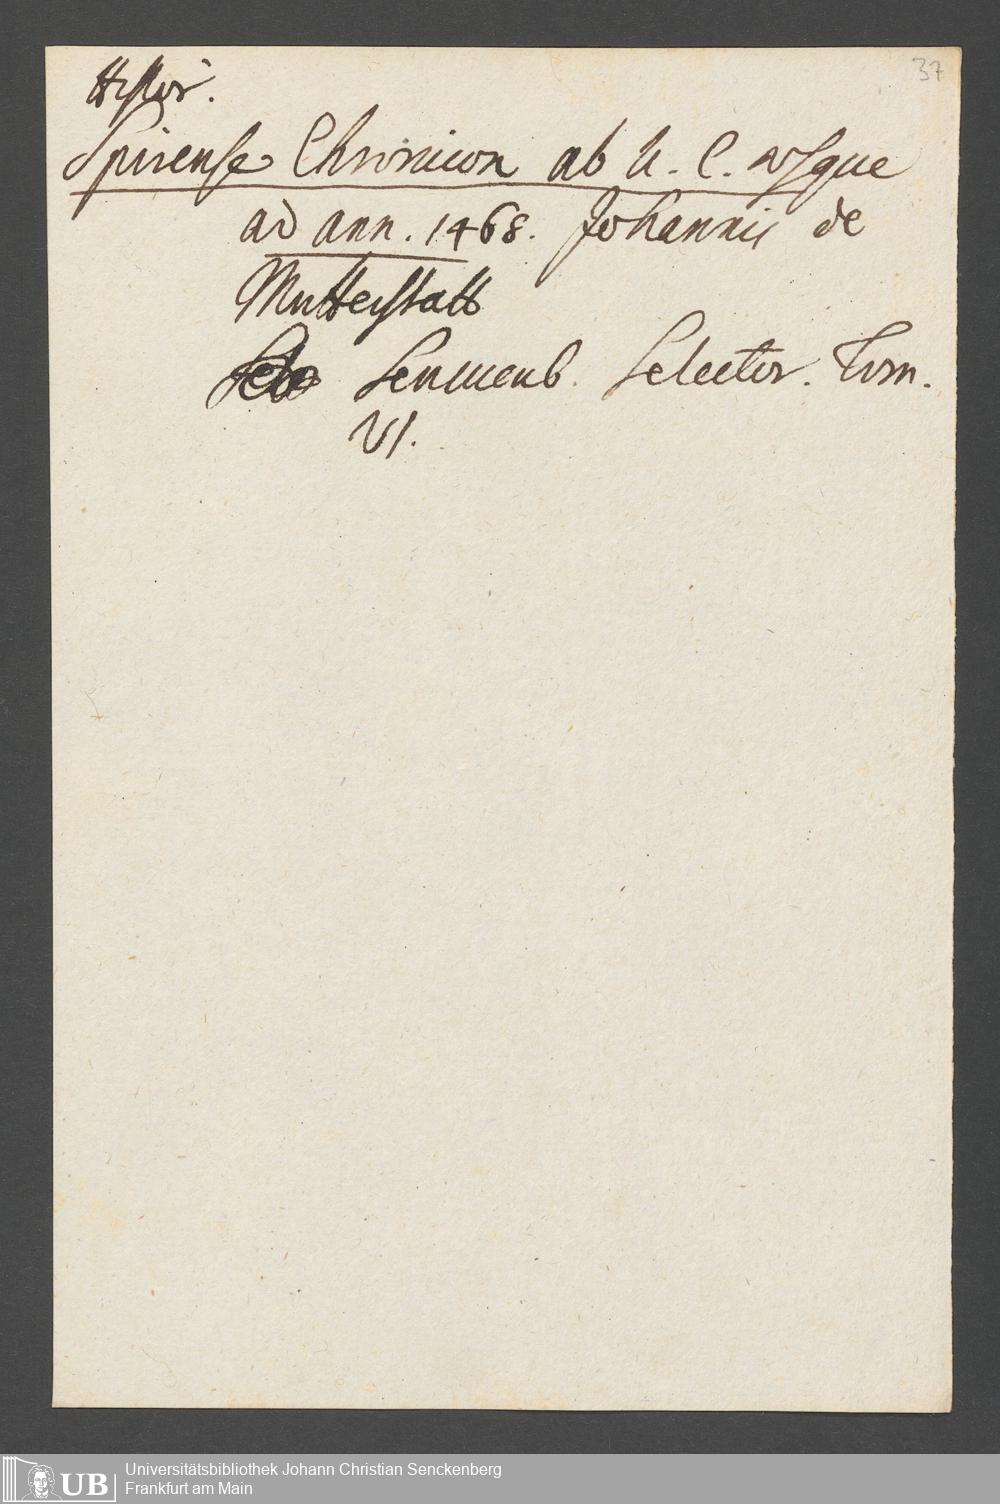 37
Histor.
Spirense Chronicon ab U. C. usque
ad ann. 1468. Johannis de
Mutterstatt
Senckenb. Selector. Tom.
VI.
UB
Universitätsbibliothek Johann Christian Senckenberg
Frankfurt am Main